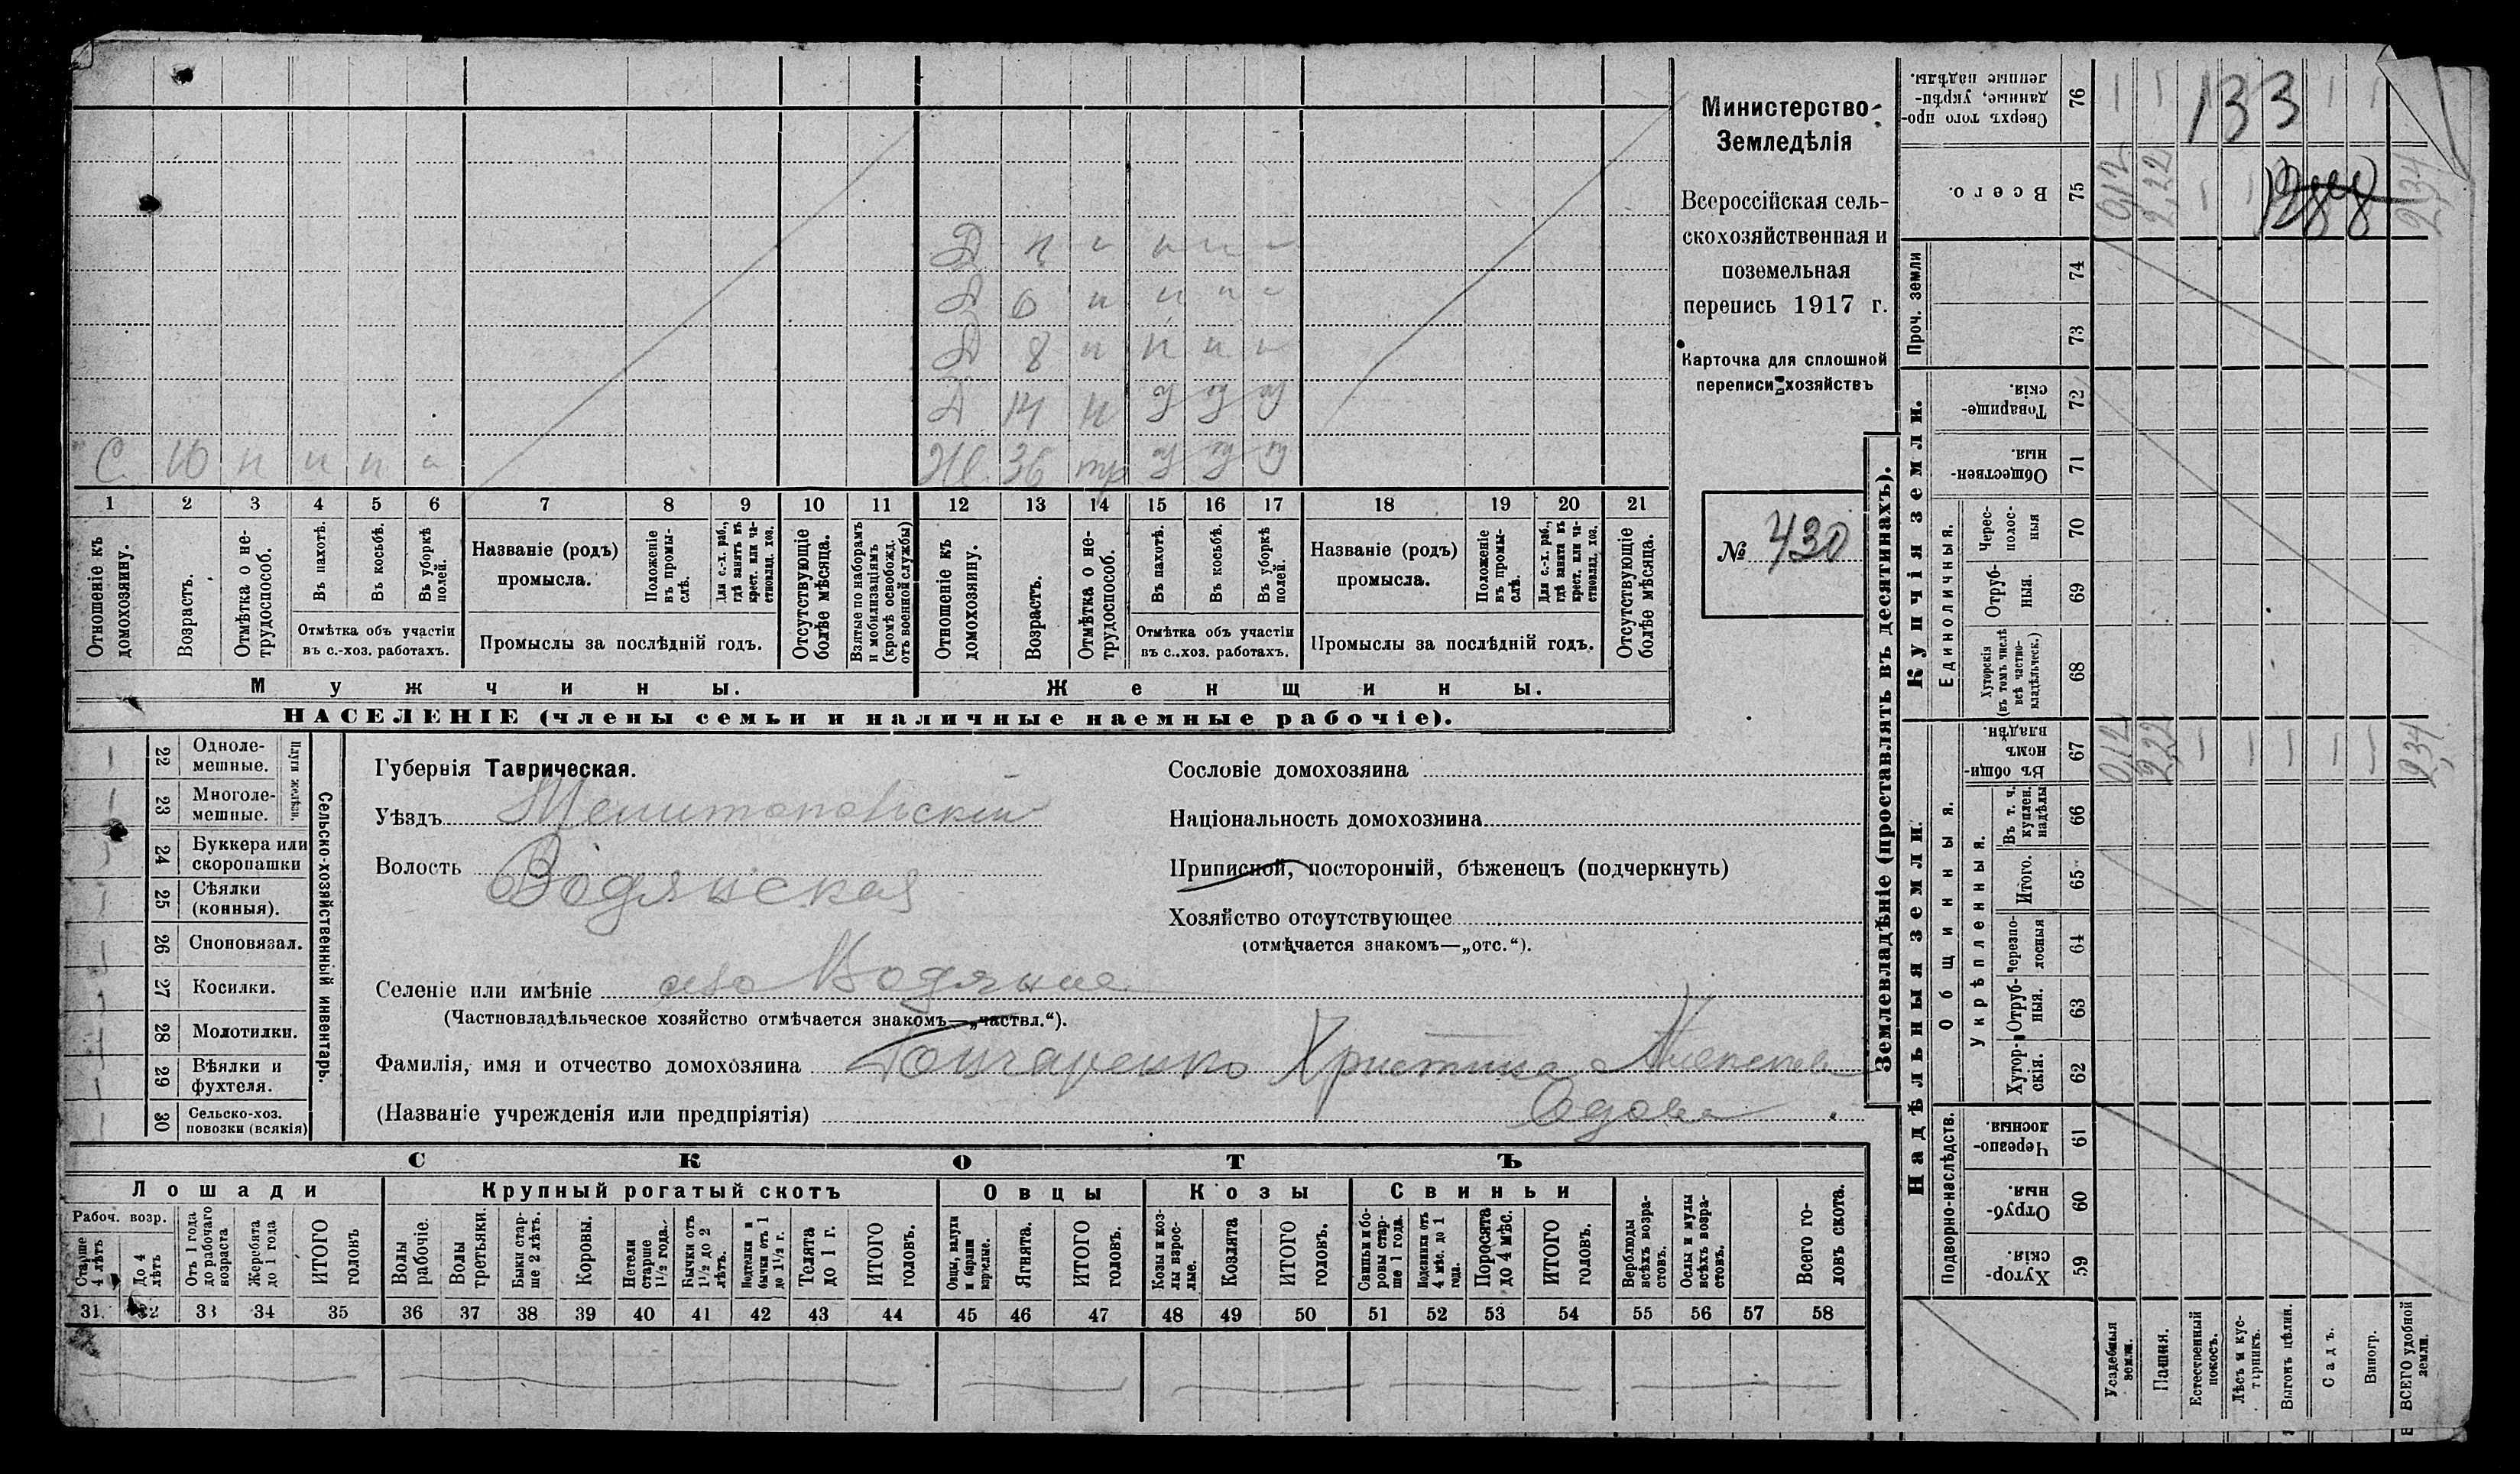 С. 10 н н н н
Д н н н н н
Д 6 н н н н
Д 8 н н н н
Д 14 н у у у
Ж. 36 тр у у у
1 2 3 4 5 6 7 8 9 10 11 12 13 14 15 16 17 18 19 20 21
Отношеніе къ домохозяину.
Возрастъ.
Отмѣтка о не-трудоспособ.
Въ пахотѣ.
Въ косьбѣ.
Въ уборкѣ полей.
Отмѣтка объ участіи
въ с.-хоз. работахъ.
Названіе (родъ)
промысла.
Положеніе въ промы-слѣ.
Для с.-х. раб., гдѣ занятъ въ крест. или ча-стновлад. хоз.
Промыслы за послѣдній годъ.
Отсутствующіе болѣе мѣсяца.
Взятые по наборамъ и мобилизаціямъ (кромѣ освобожд. отъ военной службы)
Отношеніе къ домохозяину.
Возрастъ.
Отмѣтка о не-трудоспособ.
Въ пахотѣ.
Въ косьбѣ.
Въ уборкѣ полей.
Отмѣтка объ участіи
въ с.-хоз. работахъ.
Названіе (родъ)
промысла.
Положеніе въ промы-слѣ.
Для с.-х. раб., гдѣ занята въ крест. или ча-стновлад. хоз.
Промыслы за послѣдній годъ.
Отсутствующіе болѣе мѣсяца.
Мужчины.
Женщины.
НАСЕЛЕНІЕ (члены семьи и наличные наемные рабочіе).
Министерство
Земледѣлія
Всероссійская сель-
скохозяйственная и
поземельная
перепись 1917 г.
Карточка для сплошной
переписи хозяйствъ
№ 430
22 Одноле-мешные.
23 Многоле-мешные.
Плуги желѣзн.
24 Буккера или скоропашки
25 Сѣялки (конныя).
26 Сноповязал.
27 Косилки.
28 Молотилки.
29 Вѣялки и фухтеля.
30 Сельско-хоз. повозки (всякія)
Сельско-хозяйственный инвентарь.
Губернія Таврическая.
Уѣздъ Мелитопольскій
Волость Водянская
Селеніе или имѣніе село Водяное
(Частновладѣльческое хозяйство отмѣчается знакомъ—„частвл.“).
Фамилія, имя и отчество домохозяина Гончаренко Христина Алексѣев
(Названіе учрежденія или предпріятія) Вдова
Сословіе домохозяина
Національность домохозяина
Приписной, посторонній, бѣженецъ (подчеркнуть)
Хозяйство отсутствующее
(отмѣчается знакомъ—„отс.“).
СКОТЪ
Лошади
Крупный рогатый скотъ
Овцы
Козы
Свиньи
Рабоч. возр.
Старше 4 лѣтъ
До 4 лѣтъ
Отъ 1 года до рабочаго возраста
Жеребята до 1 года
ИТОГО головъ
Волы рабочіе.
Волы третьяки.
Быки стар-ше 2 лѣтъ.
Коровы.
Нетели старше 1½ года.
Бычки отъ 1½ до 2 лѣтъ.
Подтелки и бычки отъ 1 до 1½ г.
Телята до 1 г.
ИТОГО головъ.
Овцы, валухи и бараны взрослые.
Ягнята.
ИТОГО головъ.
Козы и коз-лы взрос-лые.
Козлята
ИТОГО головъ.
Свиньи и бо-ровы стар-ше 1 года.
Подсвинки отъ 4 мѣс. до 1 года.
Поросята до 4 мѣс.
ИТОГО головъ.
Верблюды всѣхъ возра-стовъ.
Ослы и мулы всѣхъ возра-стовъ.
Всего го-ловъ скота.
31 32 33 34 35 36 37 38 39 40 41 42 43 44 45 46 47 48 49 50 51 52 53 54 55 56 57 58
Землевладѣніе (проставлять въ десятинахъ).
Сверхъ того про-данные, укрѣп-ленные надѣлы. 76
133
Всего. 75 0,12 2,22 2,34
Проч. земли
74
73
Купчія земли.
Товарище-скія. 72
Обществен-ныя. 71
Единоличныя.
Черес-полос-ныя 70
Отруб-ныя. 69
Хуторскія (въ томъ числѣ всѣ частно-владѣльческ.) 68
Надѣльныя земли.
Общинныя.
Въ общин-номъ владѣн. 67 0,12 2,22 2,34
Укрѣпленныя.
Въ т. ч. куплен. надѣлы 66
Итого. 65
Черезпо-лосныя 64
Отруб-ныя. 63
Хутор-скія. 62
Подворно-наслѣдств.
Черезпо-лосныя. 61
Отруб-ныя. 60
Хутор-скія. 59
Усадебныя земли.
Пашня.
Естественный покосъ.
Лѣсъ и кус-тарникъ.
Выгонъ цѣлин.
Садъ.
Виногр.
ВСЕГО удобной земли.